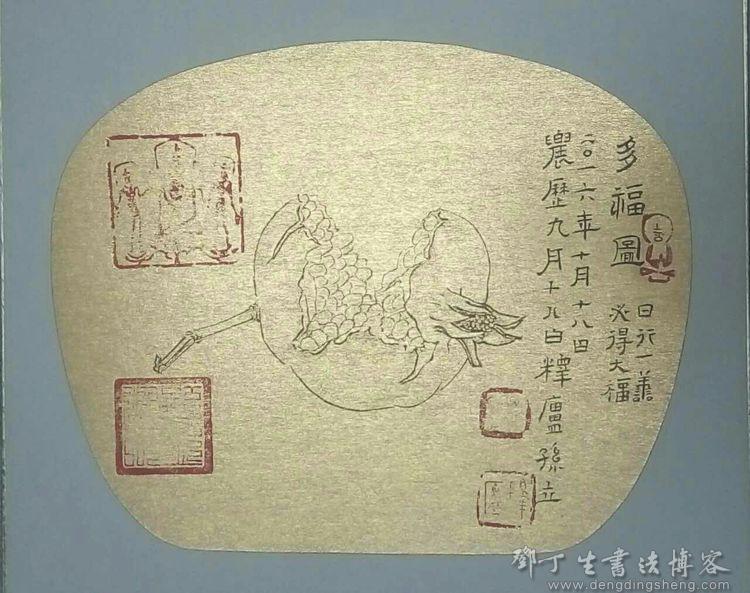 多福圖
日行一善
必得大福
二〇一六年十月十八日
農歷九月十八日釋廬孫立
吉
鄧丁生書法博客
www.dengdingsheng.com